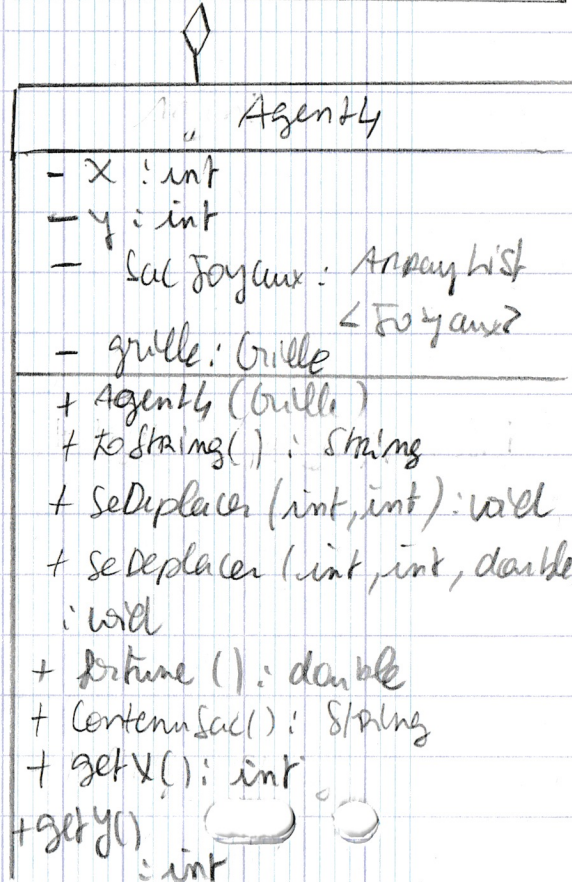 Agent4
- X : int
- y : int
- Sac Joyaux : ArrayList
<Joyaux>
- grille : Grille
+ Agent4 (Grille)
+ toString() : String
+ seDeplacer (int, int) : void
+ seDeplacer (int, int, double
: void
+ fortune () : double
+ ContenuSac() : String
+ getX() : int
+ getY()
: int